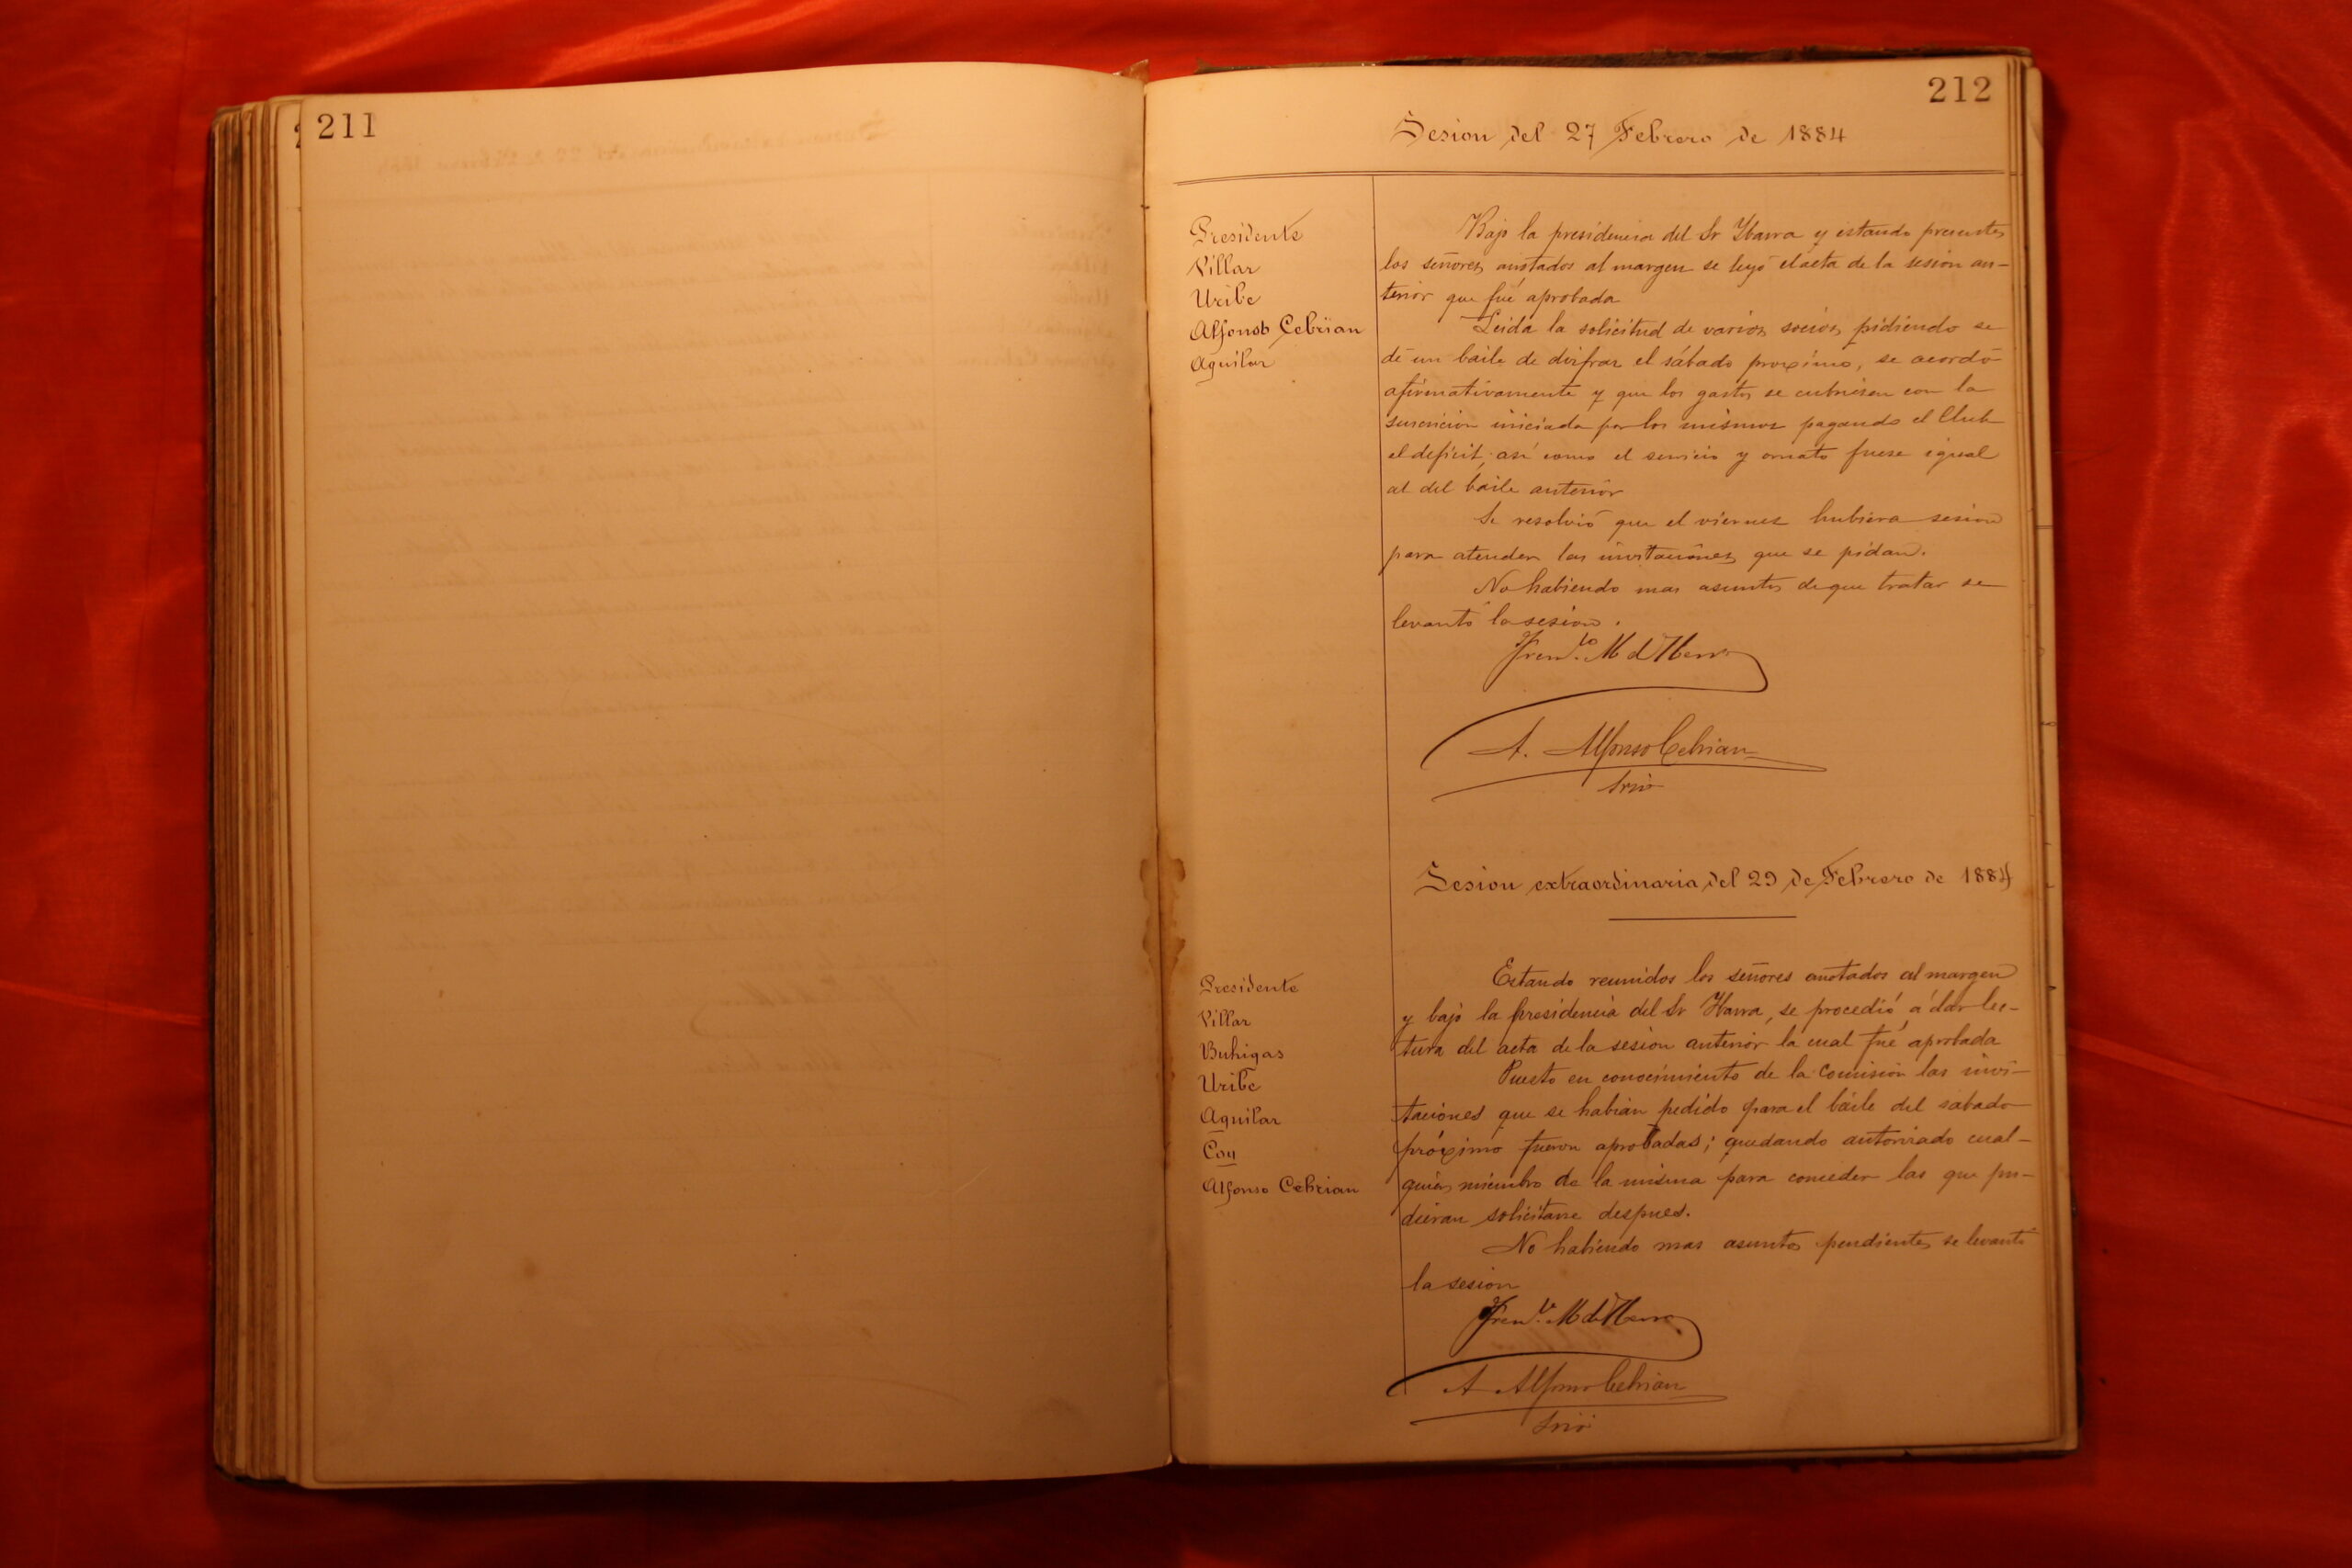 211
212
Sesion del 27 Febrero de 1884
Presidente
Villar
Uribe
Alfonso Cebrian
Aguilar
Bajo la presidencia del Sr Ybarra y estando presentes
los señores anotados al margen se leyó el acta de la sesion an-
terior que fué aprobada
Leida la solicitud de varios socios pidiendo se
dé un baile de disfraz el sábado proximo, se acordó
afirmativamente y que los gastos se cubriesen con la
suscricion iniciada por los mismos pagando el Club
el deficit; así como el servicio y ornato fuese igual
al del baile anterior
Se resolvió que el viernes hubiera sesion
para atender las invitaciones que se pidan.
No habiendo mas asuntos de que tratar se
levantó la sesion.
A. Alfonso Cebrian
Srio
Sesion extraordinaria del 29 de Febrero de 1884
Presidente
Villar
Buhigas
Uribe
Aguilar
Coy
Alfonso Cebrian
Estando reunidos los señores anotados al margen
y bajo la presidencia del Sr Ybarra, se procedió á dar lec-
tura del acta de la sesion anterior la cual fué aprobada
Puesto en conocimiento de la Comision las invi-
taciones que se habian pedido para el baile del sabado
próximo fueron aprobadas; quedando autorizado cual-
quier miembro de la misma para conceder las que pu-
dieran solicitarse despues.
No habiendo mas asuntos pendientes se levantó
la sesion
A Alfonso Cebrian
Srio